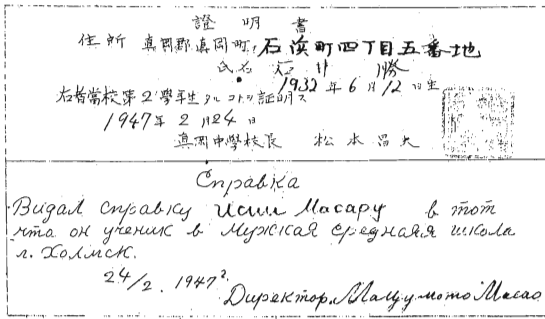 證明書
住所 真岡郡真岡町,石濱町四丁目五番地
氏名 石井 勝
1932年6月12日生
右者當校第2學年生タルコトヲ証明ス
1947年2月24日
真岡中學校長 松本昌夫
Справка
Видал справку Исии Масару в тот
что он ученик в Мужская средная школа
г. Холмск.
24/2. 1947г.
Директор. Мацумото Масао